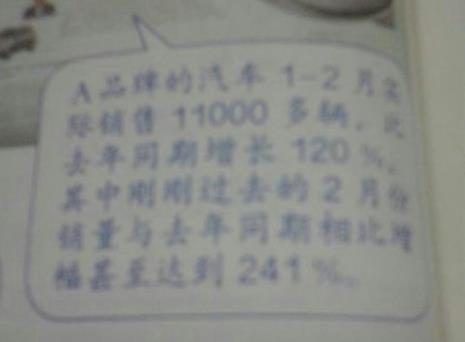 A品牌的汽车 1-2 月实
际销售 11000 多辆，比
去年同期增长 120 %，
其中刚刚过去的 2 月份
销量与去年同期相比增
幅甚至达到 241 %。